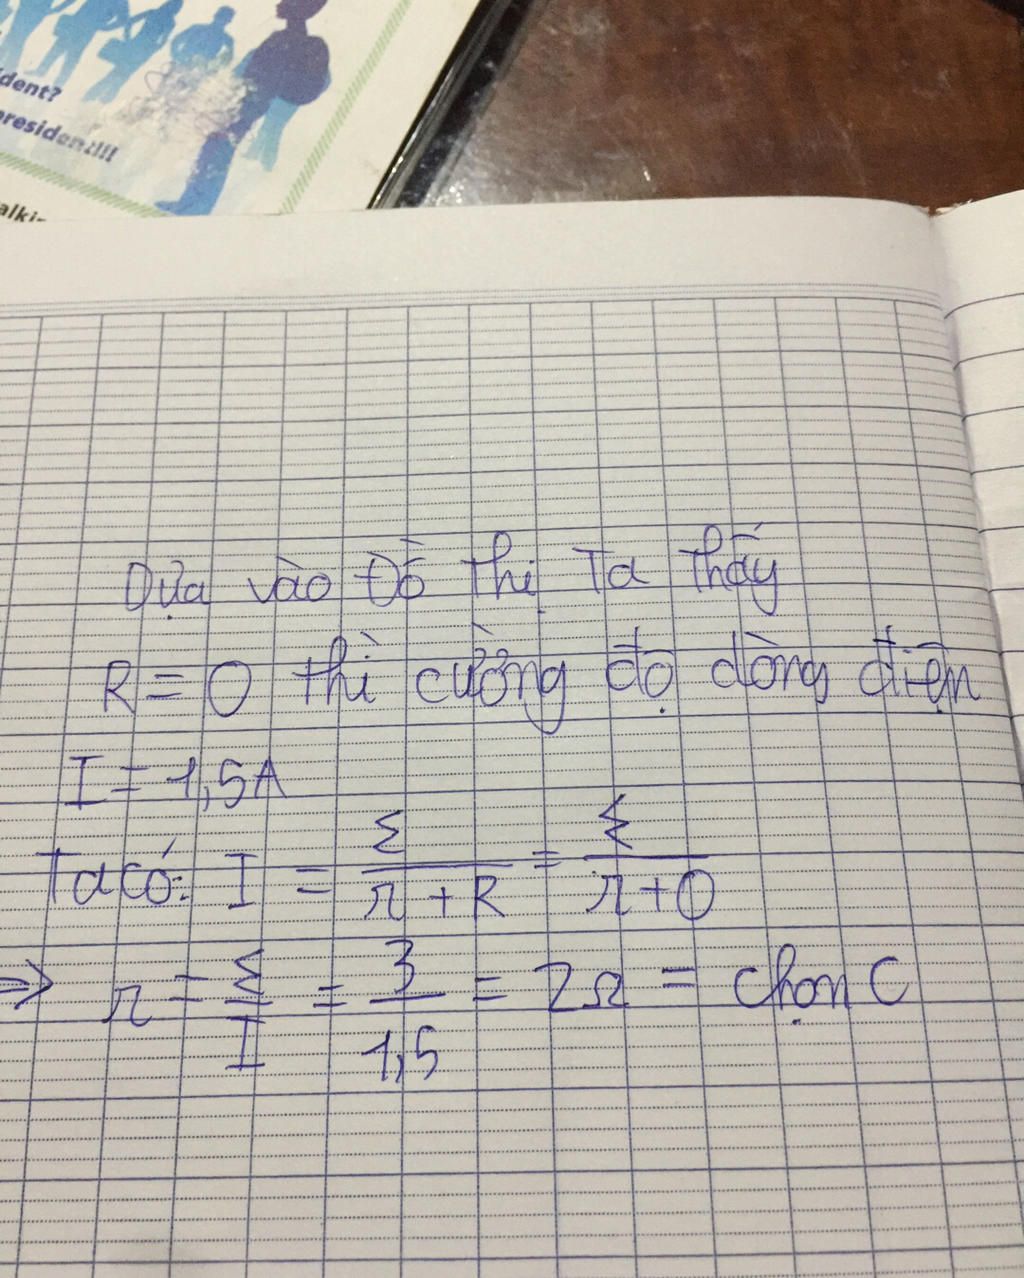 dent?
president!!!
Dựa vào Đồ thị Ta thấy
R = 0 thì cường độ dòng điện
I = 1,5A
Ta có: I = ξ / (r + R) = ξ / (r + 0)
=> r = ξ / I = 3 / 1,5 = 2Ω = chọn C